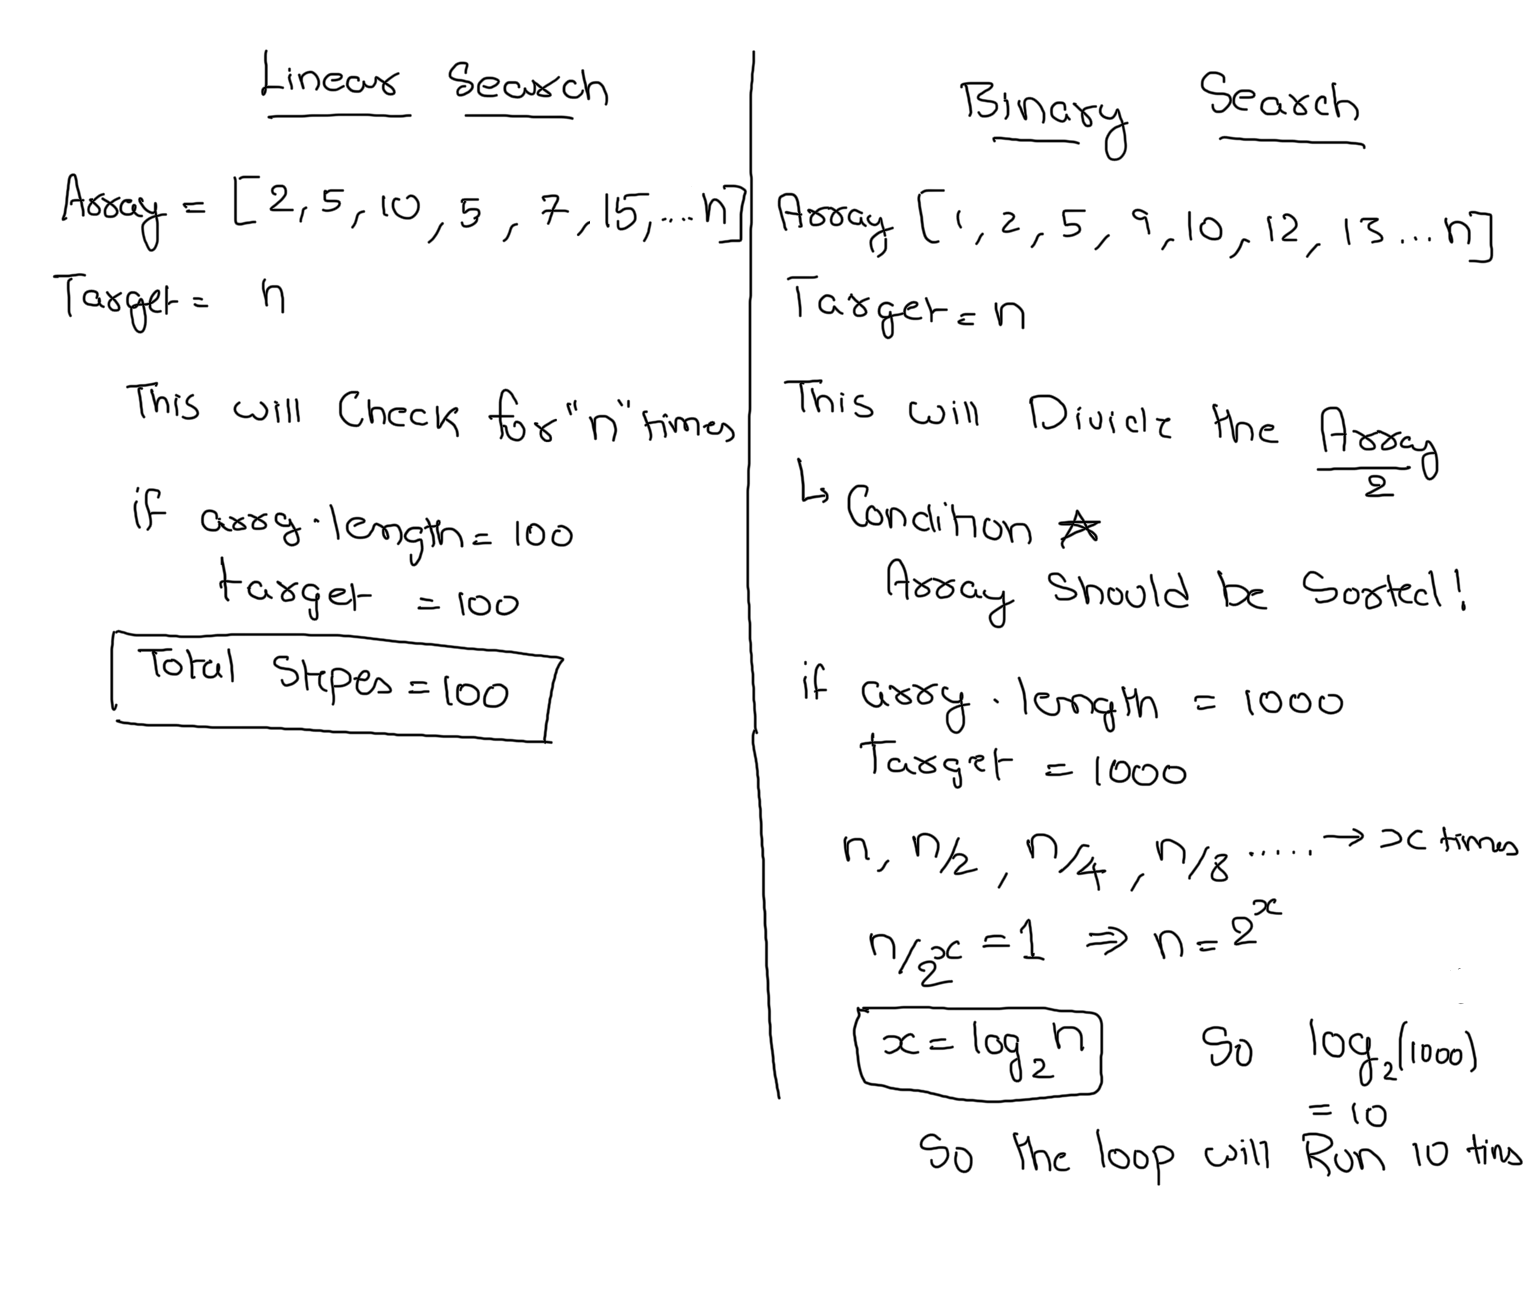 Linear Search
Array = [2, 5, 10, 5, 7, 15, .... n]
Target = n
This will Check for "n" times
if arry.length = 100
target = 100
Total Stepes = 100
Binary Search
Array [1, 2, 5, 9, 10, 12, 13 ... n]
Target = n
This will Divide the Array/2
↳ Condition ☆
Array Should be Sorted!
if arry.length = 1000
Target = 1000
n, n/2, n/4, n/8 ..... → x times
n/2^x = 1 ⇒ n = 2^x
x = log₂n So log₂(1000)
= 10
So the loop will Run 10 tims